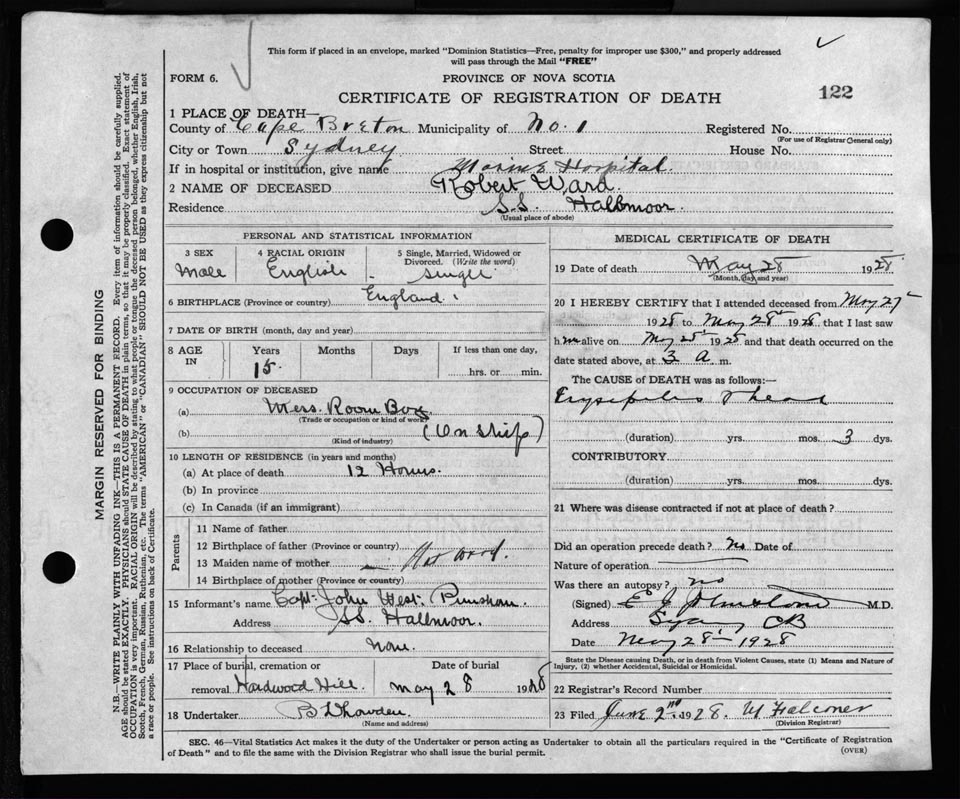 This form if placed in an envelope, marked "Dominion Statistics—Free, penalty for improper use $300," and properly addressed
will pass through the Mail "FREE"
FORM 6.
PROVINCE OF NOVA SCOTIA
CERTIFICATE OF REGISTRATION OF DEATH
122
1 PLACE OF DEATH—
County of Cape Breton Municipality of No. 1 Registered No.
(For use of Registrar General only)
City or Town Sydney Street House No.
If in hospital or institution, give name Marine Hospital.
2 NAME OF DECEASED Robert Ward.
Residence S.S. Hallmoor.
(Usual place of abode)
PERSONAL AND STATISTICAL INFORMATION
3 SEX 4 RACIAL ORIGIN 5 Single, Married, Widowed or
Divorced. (Write the word)
Male English single
6 BIRTHPLACE (Province or country) England.
7 DATE OF BIRTH (month, day and year)
8 AGE IN Years Months Days If less than one day,
15. hrs. or min.
9 OCCUPATION OF DECEASED
(a) Mess Room Boy
(Trade or occupation or kind of work)
(b) (On Ship)
(Kind of industry)
10 LENGTH OF RESIDENCE (in years and months)
(a) At place of death 12 Hours.
(b) In province
(c) In Canada (if an immigrant)
Parents
11 Name of father
12 Birthplace of father (Province or country)
13 Maiden name of mother
14 Birthplace of mother (Province or country)
15 Informant's name Capt. John West
Address SS. Hallmoor.
16 Relationship to deceased None.
17 Place of burial, cremation or Date of burial
removal Hardwood Hill May 28 1928
18 Undertaker
(Name and address)
MEDICAL CERTIFICATE OF DEATH
19 Date of death May 28 1928
(Month, day and year)
20 I HEREBY CERTIFY that I attended deceased from May 27
1928 to May 28 1928 that I last saw
him alive on May 28 1928 and that death occurred on the
date stated above, at 3 a m.
The CAUSE OF DEATH was as follows:—
Erysipelas head
(duration) yrs. mos. 3 dys.
CONTRIBUTORY
(duration) yrs. mos. dys.
21 Where was disease contracted if not at place of death?
Did an operation precede death? no Date of
Nature of operation
Was there an autopsy? no
(Signed) M.D.
Address Sydney CB
Date May 28 1928
State the Disease causing Death, or in death from Violent Causes, state (1) Means and Nature of
Injury, (2) whether Accidental, Suicidal or Homicidal.
22 Registrar's Record Number
23 Filed June 2nd 1928. M Falconer
(Division Registrar)
SEC. 46—Vital Statistics Act makes it the duty of the Undertaker or person acting as Undertaker to obtain all the particulars required in the "Certificate of Registration
of Death" and to file the same with the Division Registrar who shall issue the burial permit.
(OVER)
MARGIN RESERVED FOR BINDING
N.B.—WRITE PLAINLY WITH UNFADING INK—THIS IS A PERMANENT RECORD. Every item of information should be carefully supplied.
AGE should be stated EXACTLY. PHYSICIANS should STATE CAUSE OF DEATH in plain terms, so that it may be properly classified. Exact statement of
OCCUPATION is very important. RACIAL ORIGIN will be described by stating to what people or tongue the deceased person belonged, whether English, Irish,
Scotch, French, German, Russian, Ruthenian, etc. The terms "AMERICAN" or "CANADIAN" SHOULD NOT BE USED as they express citizenship but not
a race or people. See instructions on back of Certificate.